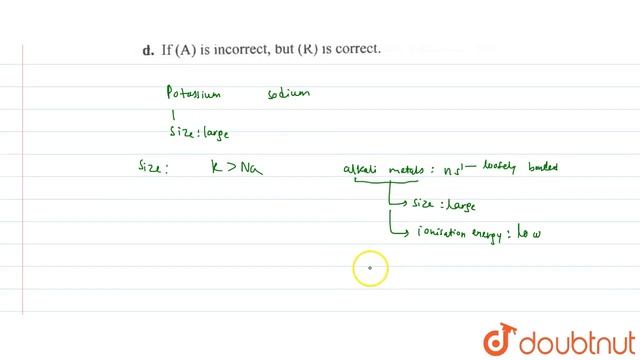 d. If (A) is incorrect, but (R) is correct.
Potassium sodium
Size: large
Size: K > Na
alkali metals: ns¹ — loosely bonded
→ size: large
→ ionisation energy: low
doubtnut